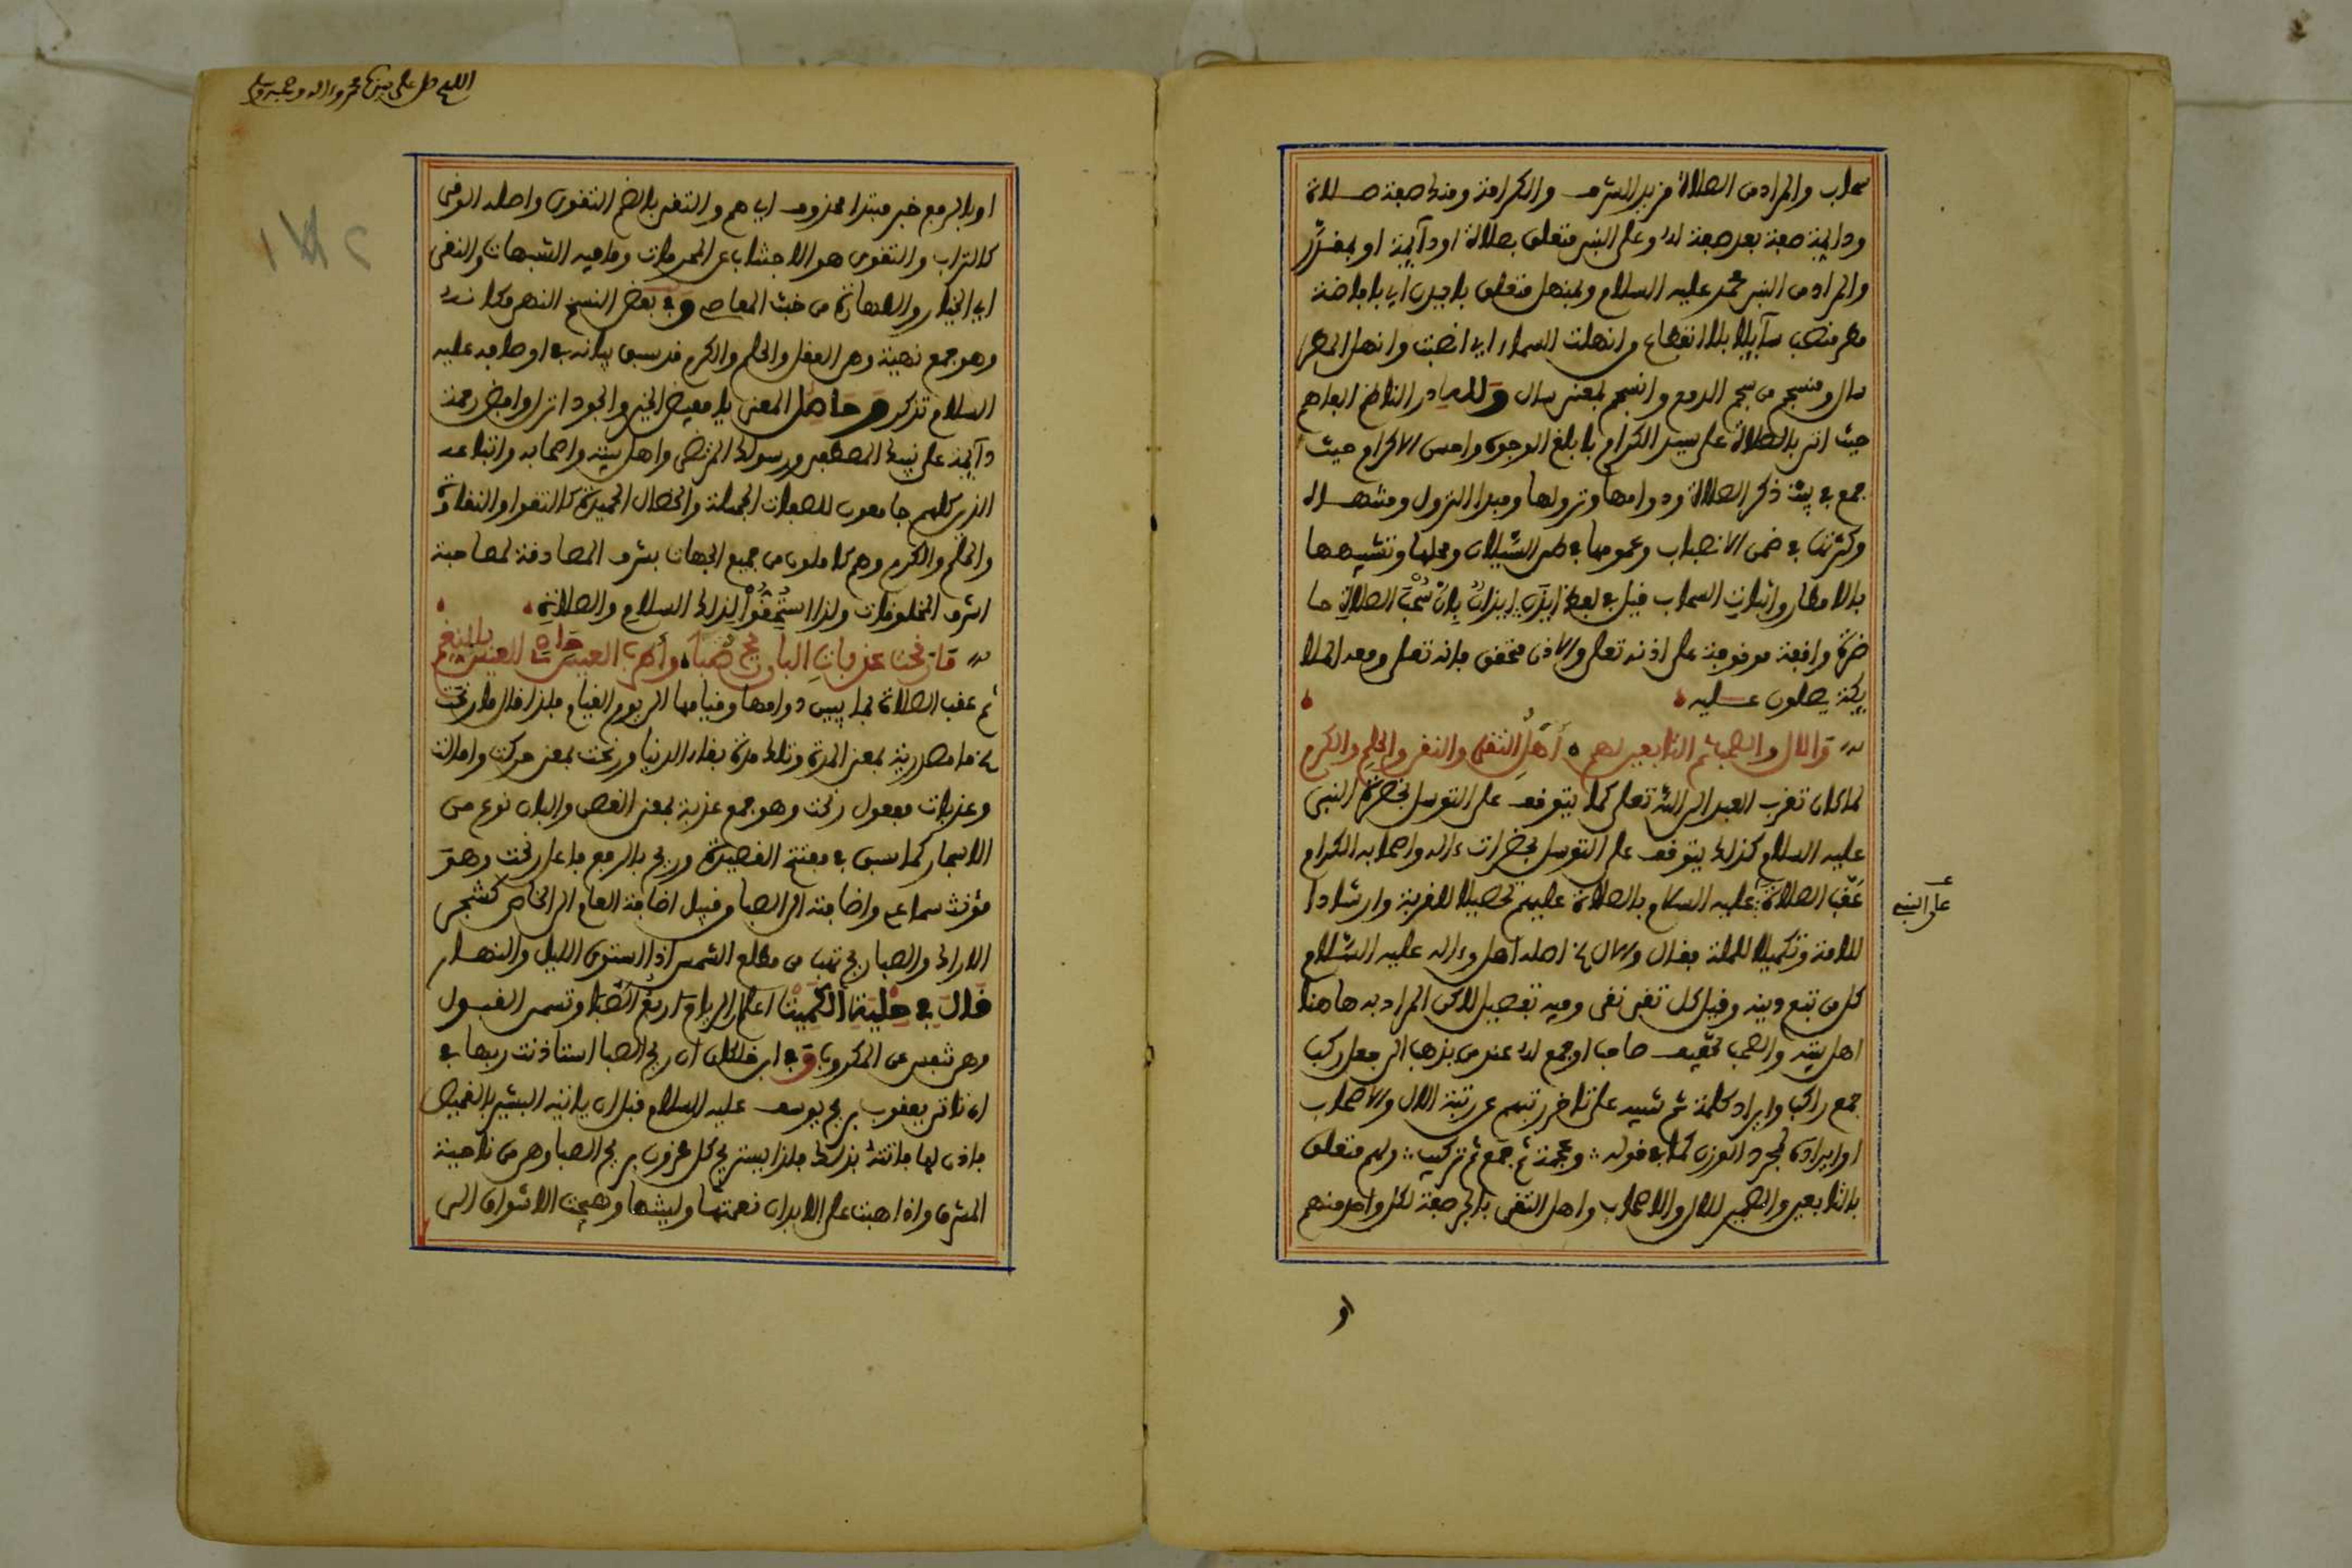 سحاب والمراد من الصلاة مزيد الشرف والكرامة ومنك صفة صلاة
ودائمة صفة بعد صفة لها وعلى النبي متعلق بصلاة او دآئمة او بمقدّر
والمراد من النبي محمد عليه السلام وبمنهل متعلق بايذن اي بافاضة
مطر منصب سآئلا بلا انقطاع وانهلت السماء اي انصبت وانهل المطر
سال ومنسجم من سجم الدمع وانسجم بمعنى سال ولله در الناظم الفاهم
حيث اتى بالصلاة على سيد الكرام بابلغ الوجوه واحسن الاكرام حيث
جمع في بيته ذكر الصلاة ودوامها ونزولها ومبدا النزول ومنتهاه
وكثرتها في ضمن الانصباب وعمومها في طي السيلان ومحلها وتشبيهها
بالامطار واثبات السحاب قيل في لفظ ايذن ايذان بان سحب الصلاة حا
ضرة واقفة موقوفة على اذنه تعلى والاذن محقق فانه تعلى ومعه الملا
يكة يصلون عليه
والال والصحب ثم التابعين لهم اهل التقى والنقى والحلم والكرم
لما كان تقرب العبد الى الله تعلى كما يتوقف على التوسل بحضرة النبي
عليه السلام كذلك يتوقف على التوسل بحضرات ءاله واصحابه الكرام
عقب الصلاة عليه السلام بالصلاة عليهم تحصيلا للقربة وارشادا
على النبي
للامة وتكميلا للملة فقال والال اصله اهل وءاله عليه السّلام
كل من تبع دينه وقيل كل تقي نقي وفيه تفصيل لاكن المراد به هاهنا
اهل بيته والصحب تخفيف صاحب او جمع له عند من يذهب الى فعل ركب
جمع راكب وايراد كلمة ثم تنبيه على تاخر رتبتهم عن رتبة الال والاصحاب
او ايراده لمجرد الوزن كما في قوله وعجمة ثم جمع ثم تركيب ولهم متعلق
بالتابعين والضمير للال والاصحاب واهل التقى بالجر صفة لكل واحد منهم
او
اللهم صل على سيدنا محمد وءاله وصحبه وسلم
او بالرفع خبر مبتدا محذوف اي هم والتقى بالضم التقوى واصله الوقى
كالتراب والتقوى هو الاجتناب عن المحرمات وما فيه الشبهات والنقى
اي الخيار والطهارة من خبث المعاصي وفي بعض النسخ النهى مكانه
وهو جمع نهية وهي العقل والحلم والكرم قد سبق بيانه في اوصافه عليه
السلام تذكر وحاصل المعنى يا مفيض الخير والجود انزل وافض رحمة
دآئمة على نبيك المصطفى ورسولك المرتضى واهل بيته واصحابه واتباعه
الذين كلهم جامعون للصفات الجميلة والخصال الحميدة كالتقوا والنقاوة
والحلم والكرم وهم كاملون من جميع الجهات بشرف المصادفة لمصاحبة
اشرف المخلوقات ولذا استحقوا لذلك السلام والصلاة
ما رنحت عذبات البان ريح صبا واطرب العيس حادي العيس بالنغم
ثم عقب الصلاة بما يبين دوامها وقيامها الى يوم القيام فلذا قال ما رنحت
ما مصدرية بمعنى المدة وتلك مدة بقاء الدنيا ورنحت بمعنى حركت وامالت
وعذبات مفعول رنحت وهو جمع عذبة بمعنى الغصن والبان نوع من
الاشجار كما سبق في مفتتح القصيدة وريح بالرفع فاعل رنحت وهو
مؤنث سماعي واضافته الى الصبا من قبيل اضافة العام الى الخاص كشجر
الاراك والصبا ريح تهب من مطلع الشمس اذا استوى الليل والنهار
قال في حلية الكميت اعلم ان الرياح اربع الصبا وتسمى القبول
وهي تنفس عن المكروب وفي ابن خلكان ان ريح الصبا استاذنت ربها في
ان تاتي يعقوب بريح يوسف عليه السلام قبل ان ياتيه البشير بالقميص
فاذن لها فاتته بذلك فلذا يستريح كل محزون بريح الصبا وهي من ناحية
المشرق واذا هبت على الابدان نعمتها ولينتها وهيجت الاشواق الى